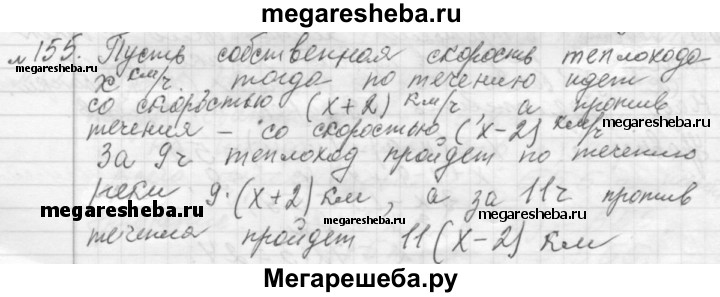 megaresheba.ru
№155. Пусть собственная скорость теплохода
megaresheba.ru
x км/ч. тогда по течению идет
megaresheba.ru
со скоростью (x+2) км/ч а против
течения – со скоростью (x-2) км/ч
megaresheba.ru
За 9ч теплоход пройдет по течению
megaresheba.ru
реки 9·(x+2) км, а за 11ч против
megaresheba.ru
megaresheba.ru
течения пройдет 11(x-2) км
Мегарешеба.ру